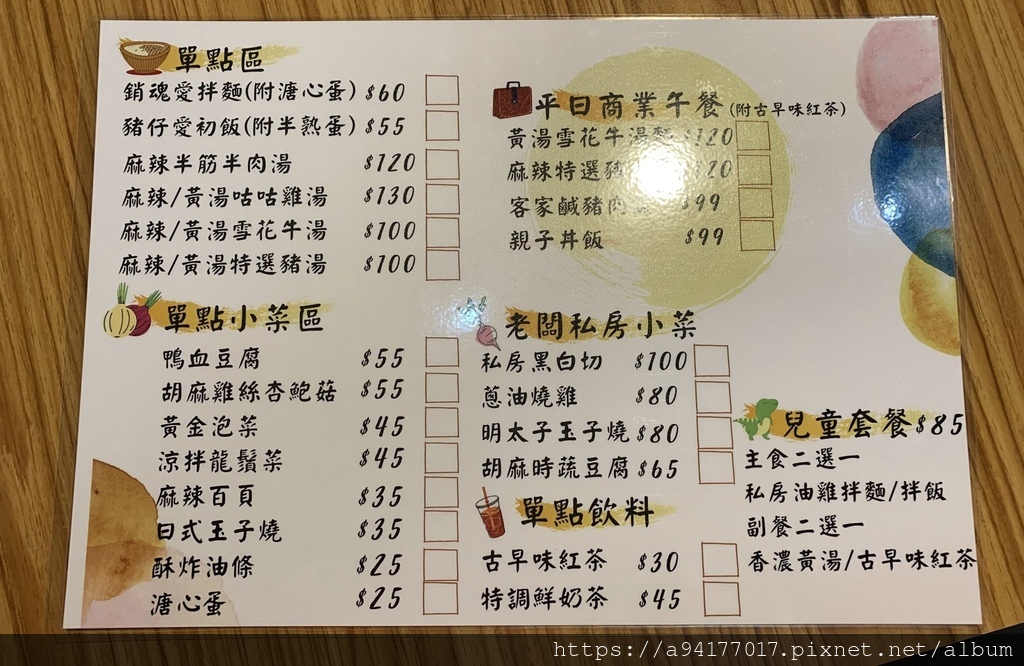 單點區
銷魂愛拌麵(附溏心蛋) $60
豬仔愛初飯(附半熟蛋) $55
麻辣半筋半肉湯 $120
麻辣/黃湯咕咕雞湯 $130
麻辣/黃湯雪花牛湯 $100
麻辣/黃湯特選豬湯 $100
單點小菜區
鴨血豆腐 $55
胡麻雞絲杏鮑菇 $55
黃金泡菜 $45
涼拌龍鬚菜 $45
麻辣百頁 $35
日式玉子燒 $35
酥炸油條 $25
溏心蛋 $25
平日商業午餐(附古早味紅茶)
黃湯雪花牛湯麵 $120
麻辣特選豬 20
客家鹹豬肉 $99
親子丼飯 $99
老闆私房小菜
私房黑白切 $100
蔥油燒雞 $80
明太子玉子燒 $80
胡麻時蔬豆腐 $65
單點飲料
古早味紅茶 $30
特調鮮奶茶 $45
兒童套餐$85
主食二選一
私房油雞拌麵/拌飯
副餐二選一
香濃黃湯/古早味紅茶
https://a94177017.pixnet.net/album